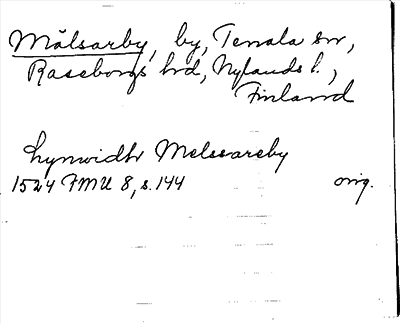 Målsarby, by, Tenala sn,
Raseborgs hd, Nylands l.,
Finland
Lynwidh Melssareby
1524 FMU 8, s. 144 orig.